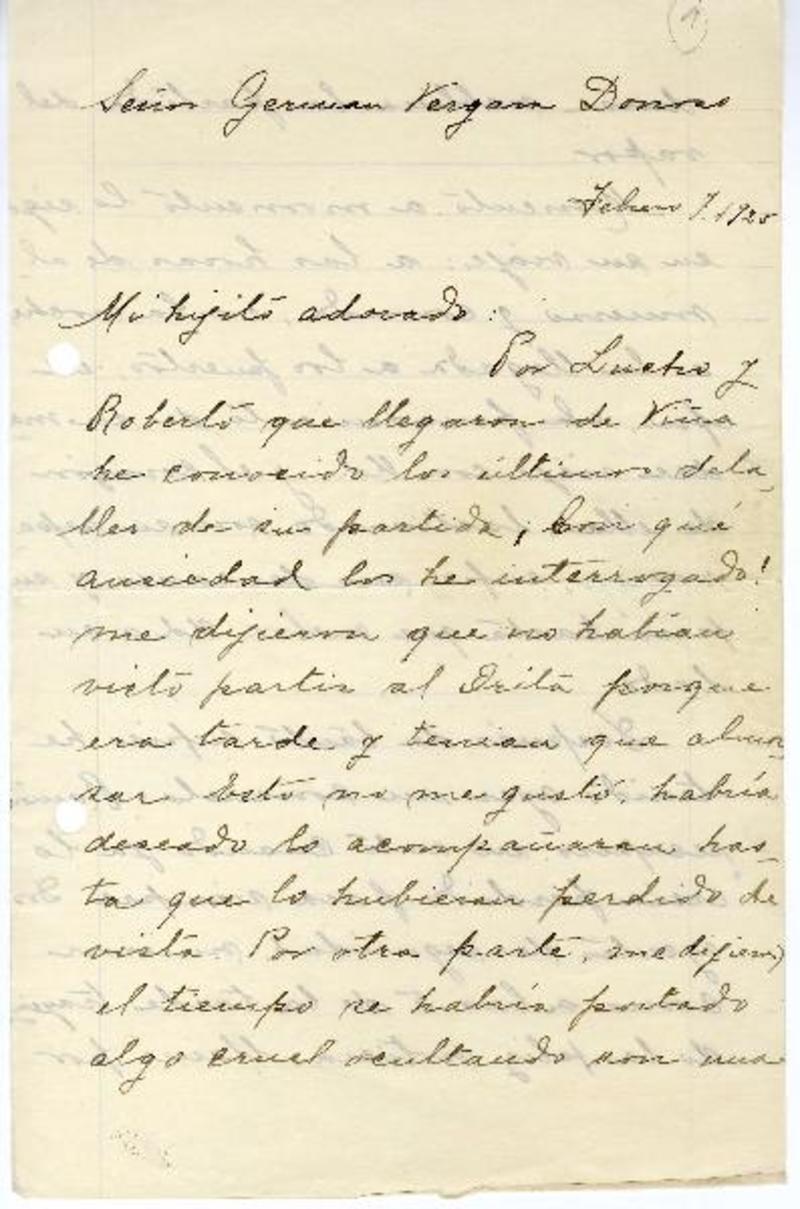 1
Señor German Vergara Donoso
Febrero 7. 1925
Mi hijito adorado:
Por Lucho y
Roberto que llegaron de Viña
he conocido los últimos deta-
lles de su partida; Con qué
ansiedad los he interrogado!
me dijieron que no habían
visto partir al Orita porque
era tarde y tenian que almor-
zar. Esto no me gustó, habría
deseado lo acompañaran has-
ta que lo hubieran perdido de
vista. Por otra parte, me dijieron
el tiempo se habría portado
algo cruel ocultando con una